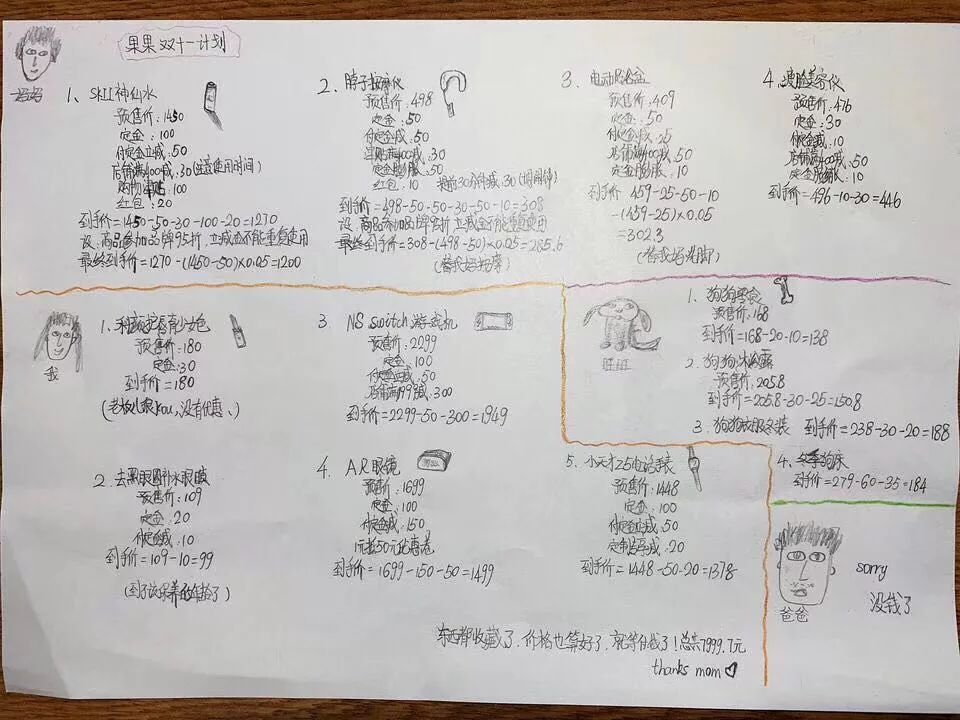 果果双十一计划
妈妈
1、SKII神仙水
预售价：1450
定金：100
付定金立减：50
店铺满400减：30(注意使用时间)
购物津贴：100
红包：20
到手价=1450-50-30-100-20=1270
设：商品参加品牌95折，立减金不能重复使用
最终到手价=1270-(1450-50)×0.05=1200
2、脖子按摩仪
预售价：498
定金：50
付定金减：50
满400减：30
定金膨胀：50
红包：10
前30分钟减：30(调闹钟)
到手价=498-50-50-30-50-10=308
设：商品参加品牌95折，立减金不能重复使用
最终到手价=308-(498-50)×0.05=285.6
(替我妈按摩)
3、电动泡脚盆
预售价：409
定金：50
付定金减：25
店铺满400减：50
定金膨胀：10
到手价 459-25-50-10
-(459-25)×0.05
=302.3
(替我妈泡脚)
4、瘦脸美容仪
预售价：476
定金：30
付定金减：10
店铺满400减：50
定金膨胀：10
到手价=496-10-30=446
我
1、
预售价：180
定金：30
到手价=180
(没有优惠、)
2、去黑眼圈补水眼膜
预售价：109
定金：20
付定金减：10
到手价=109-10=99
(到了该保养的年龄了)
3 NS switch 游戏机
预售价：2299
定金：100
付定金立减：50
店铺满1999减：300
到手价=2299-50-300=1949
4、AR眼镜
预售价：1699
定金：100
付定金减：150
1元抵50元优惠卷
到手价=1699-150-50=1499
5、小天才Z5电话手表
预售价：1448
定金：100
付定金立减：50
减：20
到手价=1448-50-20=1378
旺旺
1、狗狗零食
预售价：168
到手价=168-20-10=138
2、狗狗沐浴露
预售价：205.8
到手价=205.8-30-25=150.8
3、狗狗衣服冬装 到手价=238-30-20=188
4、冬季狗床
到手价=279-60-35=184
爸爸
sorry
没钱了
东西都收藏了，价格也算好了，就等付钱了！总共7999.7元
thanks mom♡